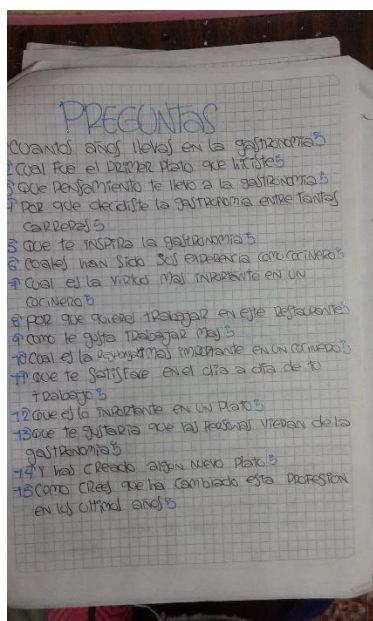 PREGUNTAS
CUANTOS AÑOS llevas en la gastronomia?
2 Cual fue el PRIMER Plato que hiciste?
3 QUE PENSAMIENTO te llevo a la gastronomia?
4 POR que decidiste la gastronomia entre tantas
CARRERAS?
5 QUE te INSPIRA la gastronomia?
6 Cuales han sido SUS experencia como cocinero?
7 Cual es la virtud mas inportante en un
cocinero?
8 POR que quieres trabajar en este restaurante?
9 Como le gusta trabajar mas?
10 Cual es la mas importante en un cocinero?
11 QUE te Satisface en el dia a dia de tu
trabajo?
12 Que es lo inportante en un Plato?
13 QUE te gustaria que las personas vieran de la
gastronomia?
14 Y has CREADO algun nuevo Plato?
15 Como CREES que ha cambiado esta PROFESION
en los ultimos años?